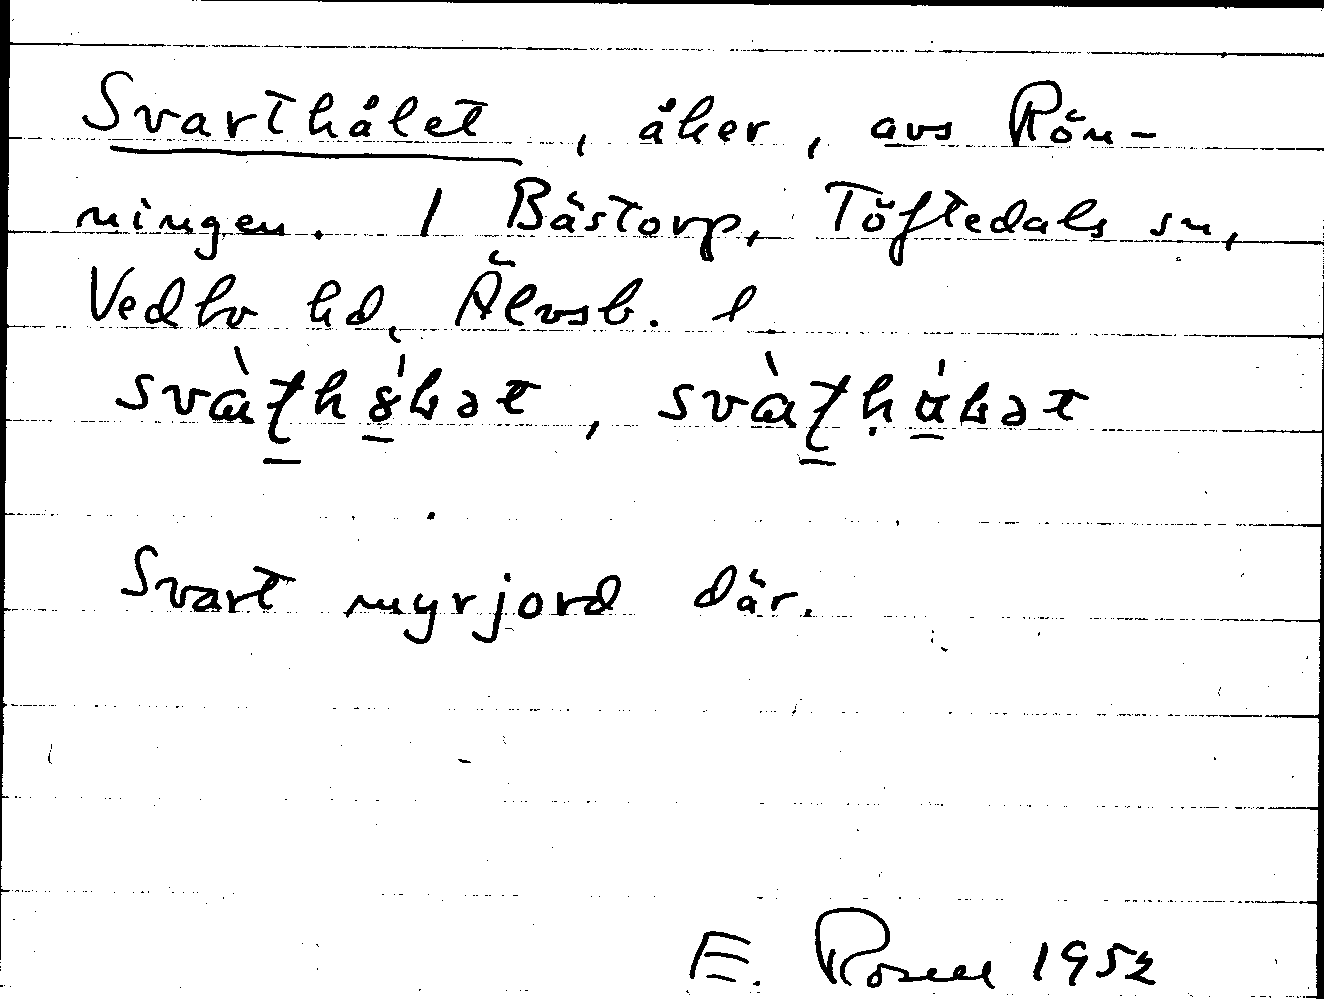 Svarthålet, åker, avs Rön-
ningen. I Båstorp, Töftedals sn,
Vedbo hd, Älvsb. l.
Svart myrjord där.
E. Rosell 1952